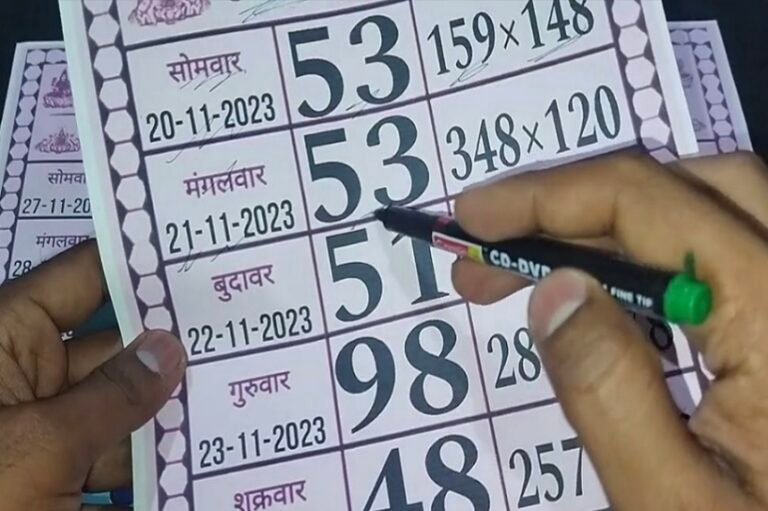 सोमवार 53 159×148
20-11-2023
मंगलवार 53 348×120
21-11-2023
बुदावर 51
22-11-2023
गुरुवार 98 28
23-11-2023
शक्रवार 48 257
27-11-20
28-
CD-DVD
FINE TIP